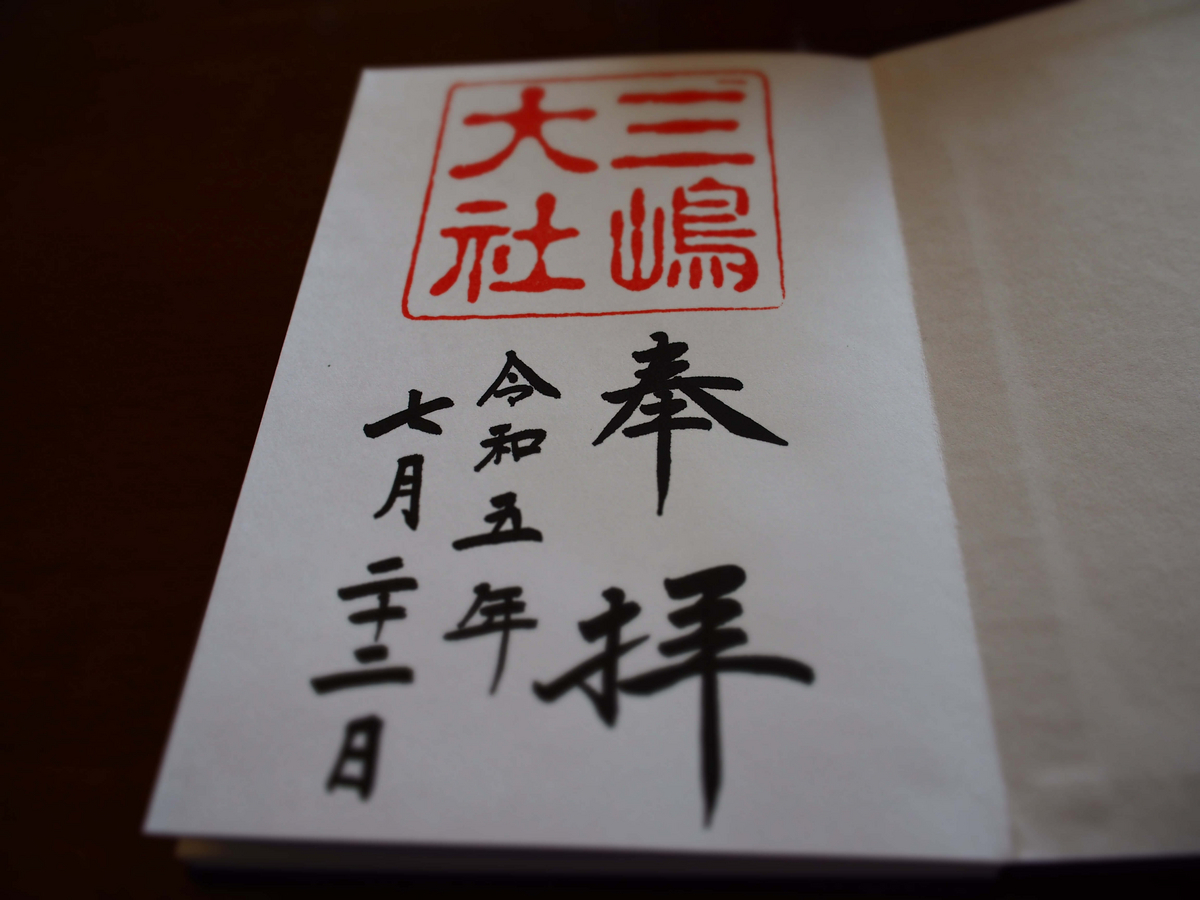 三嶋
大社
奉拝
令和五年
七月二十二日